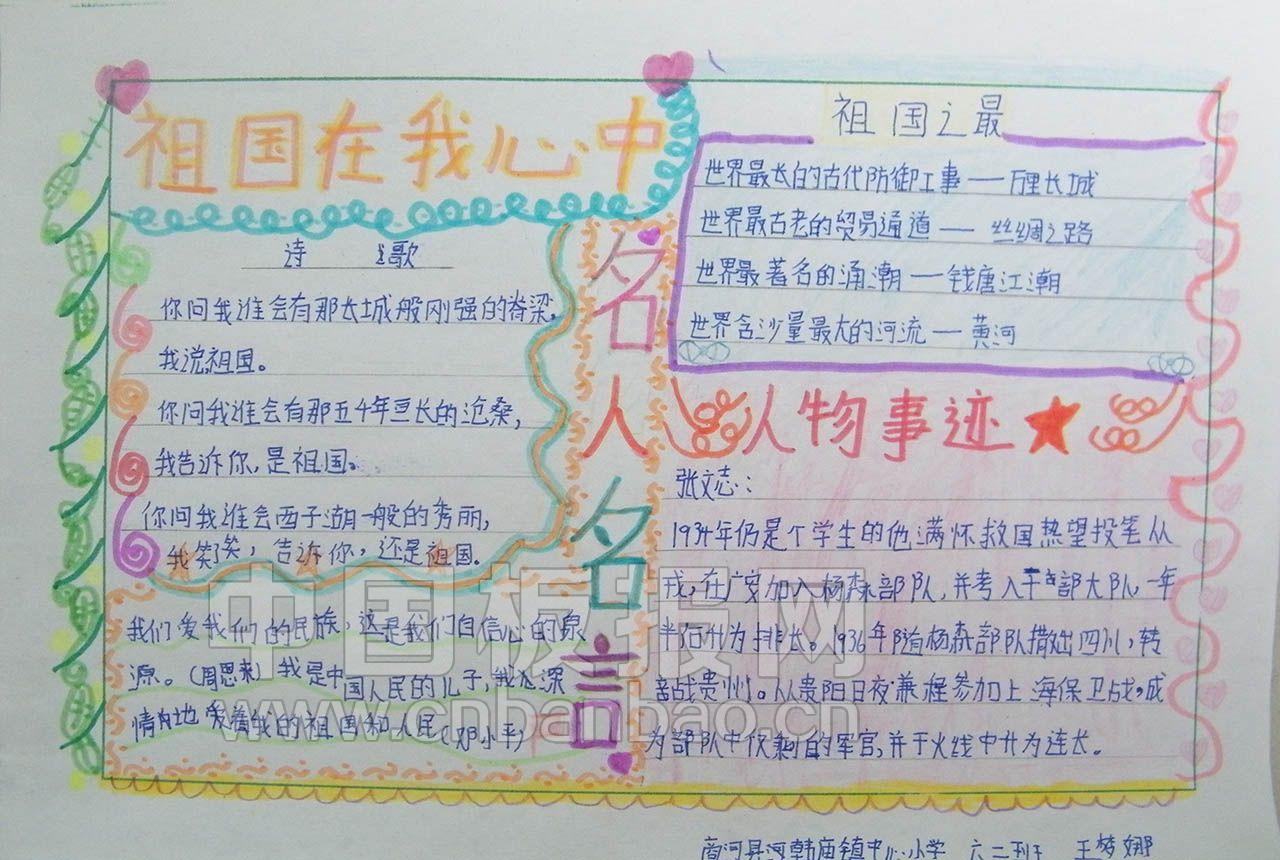 祖国在我心中
诗 歌
你问我谁会有那长城般刚强的脊梁,
我说,祖国。
你问我谁会有那五千年亘长的沧桑,
我告诉你,是祖国。
你问我谁会西子湖一般的秀丽,
我笑笑,告诉你,还是祖国。
名人名言
我们爱我们的民族,这是我们自信心的泉
源。(周恩来)我是中国人民的儿子,我深
情地爱着我的祖国和人民(邓小平)
祖国之最
世界最长的古代防御工事——万里长城
世界最古老的贸易通道——丝绸之路
世界最著名的涌潮——钱唐江潮
世界含沙量最大的河流——黄河
人物事迹
张文志:
1934年仍是个学生的他满怀救国热望投笔从
戎,在广安加入杨森部队,并考入干部大队,一年
半后升为排长。1936年随杨森部队撤出四川,转
战贵州。从贵阳日夜兼程参加上海保卫战,成
为部队中仅剩的军官,并于火线中升为连长。
商河县河韩庙镇中心小学 六二班 王梦娜
中国板报网
www.cnbanbao.cn